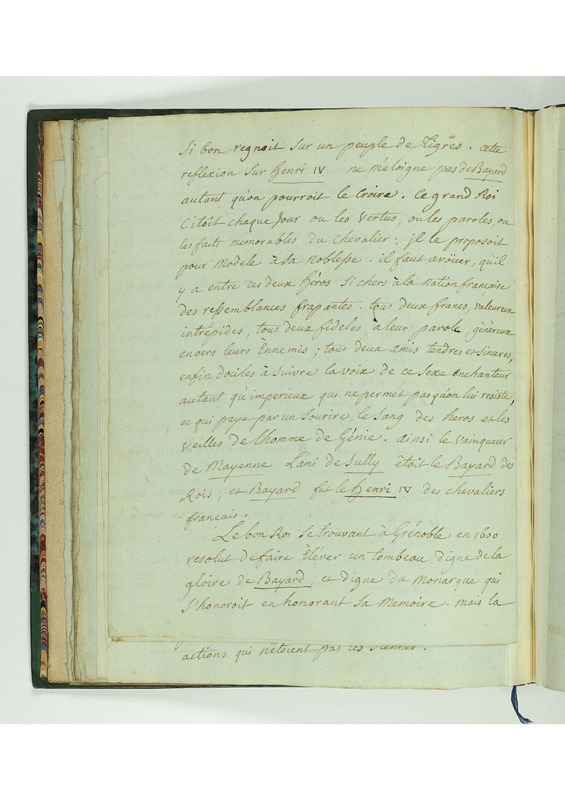 si bon regnoit sur un peuple de Tigres. cette
reflexion sur henri IV ne m'eloigne pas de Bayard
autant qu'on pourroit le croire. ce grand Roi
citoit chaque jour ou les vertus, ou les paroles, ou
les faits memorables du chevalier; jl le proposoit
pour modele à sa noblesse. il faut avoüer, qu'il
y a entre ces deux héros si chers à la nation françoise
des ressemblances frapantes. tous deux francs, valeureux
intrépides, tous deux fideles à leur parole, généreux
envers leurs Ennemis; tous deux amis tendres et sinceres,
enfin dociles à suivre la voix de ce sexe enchanteur
autant qu'imperieux qui ne permet pas qu'on lui resiste,
et qui paye par un sourire, le sang des heros et les
veilles de l'homme de Génie. ainsi le vainqueur
de Mayenne L'ami de Sully étoit le Bayard des
Rois, et Bayard fut le henri IV des chevaliers
français.
Le bon Roi se trouvant à Grénoble en 1600
resolut de faire Elever un tombeau digne de la
gloire de Bayard, et digne du Monarque qui
s'honoroit en honorant sa Memoire. mais la
actions qui n'étoient pas les siennes.